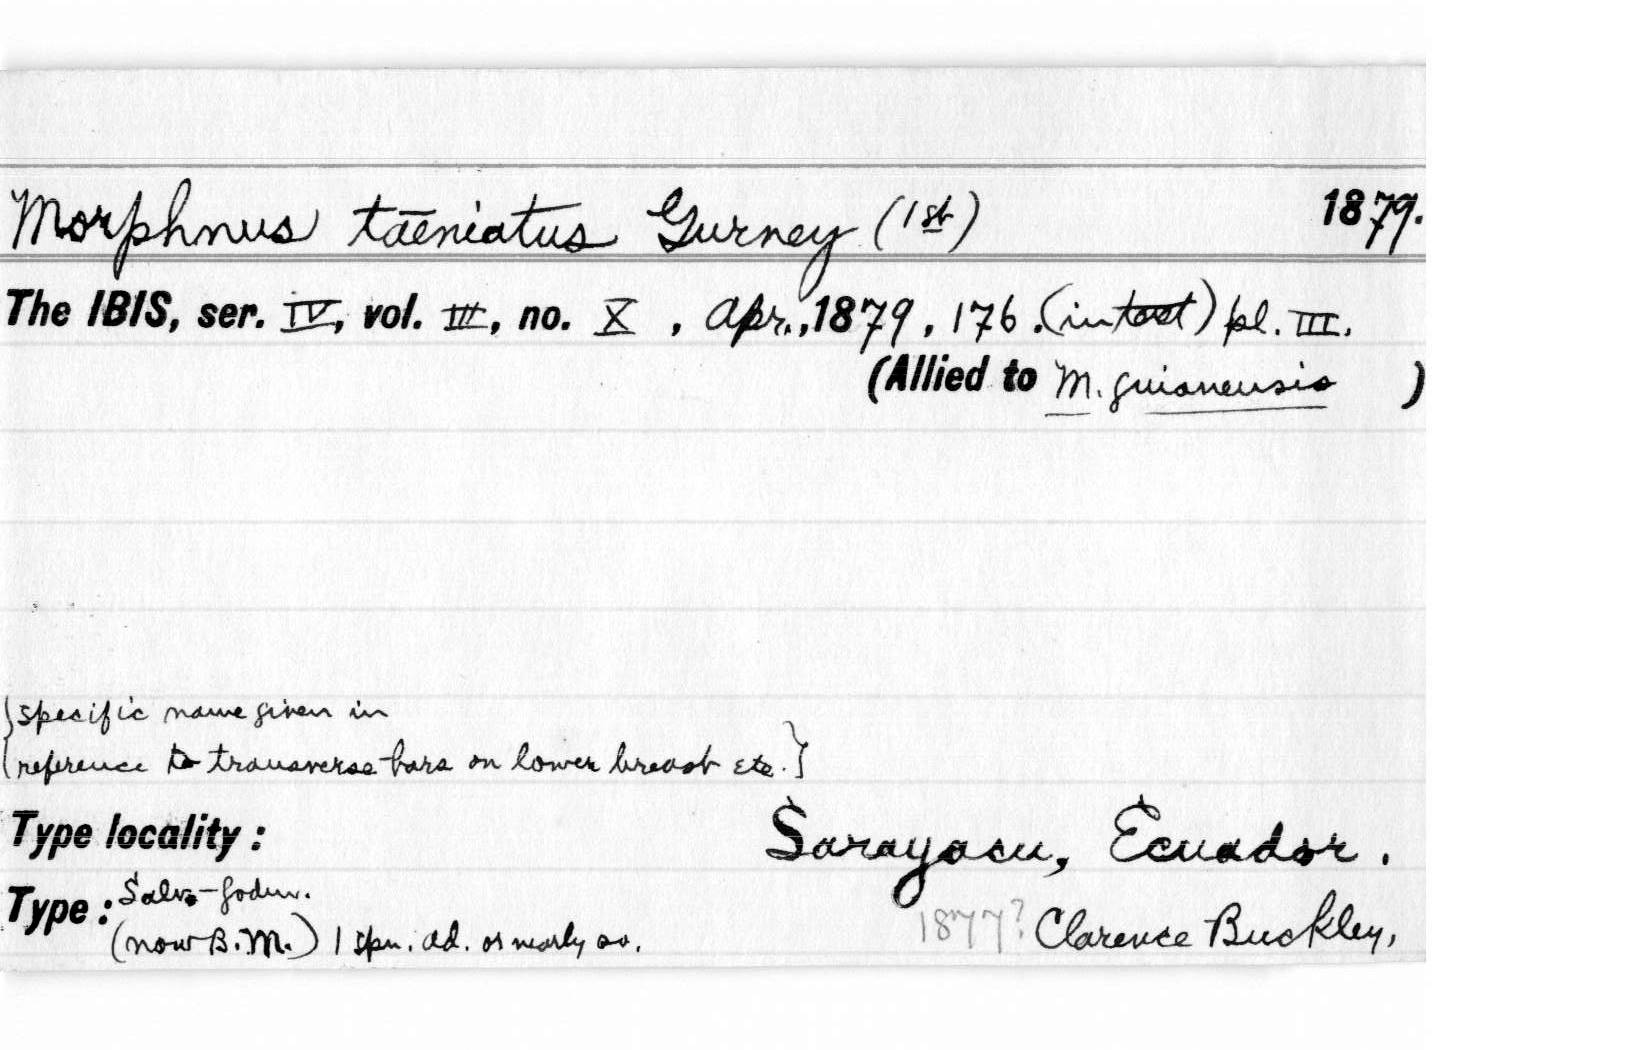 Morphnus tæniatus Gurney (1st) 1879.
The IBIS, ser. IV, vol. III, no. X , Apr., 1879 , 176 . (in text) pl. III.
(Allied to M. guianensis )
{specific name given in
reference to transverse bars on lower breast etc.}
Type locality : Sarayacu, Ecuador .
Type : Salv-Godm.
(now B.M.) 1 spn. ad. or nearly so. 1877? Clarence Buckley,